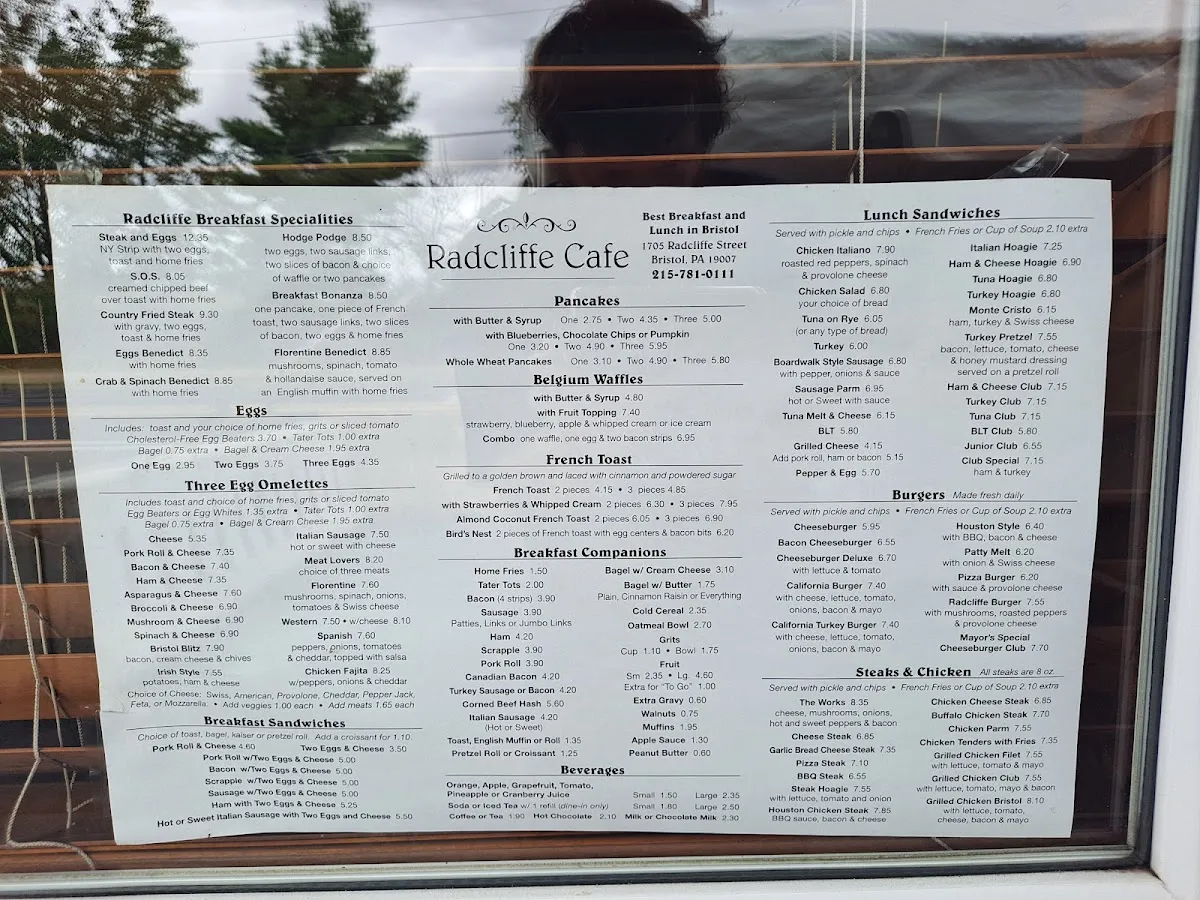 Radcliffe Breakfast Specialities
Steak and Eggs 12.35
NY Strip with two eggs,
toast and home fries
S.O.S. 8.05
creamed chipped beef
over toast with home fries
Country Fried Steak 9.30
with gravy, two eggs,
toast & home fries
Eggs Benedict 8.35
with home fries
Crab & Spinach Benedict 8.85
with home fries
Hodge Podge 8.50
two eggs, two sausage links,
two slices of bacon & choice
of waffle or two pancakes
Breakfast Bonanza 8.50
one pancake, one piece of French
toast, two sausage links, two slices
of bacon, two eggs & home fries
Florentine Benedict 8.85
mushrooms, spinach, tomato
& hollandaise sauce, served on
an English muffin with home fries
Eggs
Includes: toast and your choice of home fries, grits or sliced tomato
Cholesterol-Free Egg Beaters 3.70 • Tater Tots 1.00 extra
Bagel 0.75 extra • Bagel & Cream Cheese 1.95 extra
One Egg 2.95 Two Eggs 3.75 Three Eggs 4.35
Three Egg Omelettes
Includes toast and choice of home fries, grits or sliced tomato
Egg Beaters or Egg Whites 1.35 extra • Tater Tots 1.00 extra
Bagel 0.75 extra • Bagel & Cream Cheese 1.95 extra
Cheese 5.35
Pork Roll & Cheese 7.35
Bacon & Cheese 7.40
Ham & Cheese 7.35
Asparagus & Cheese 7.60
Broccoli & Cheese 6.90
Mushroom & Cheese 6.90
Spinach & Cheese 6.90
Bristol Blitz 7.90
bacon, cream cheese & chives
Irish Style 7.55
potatoes, ham & cheese
Italian Sausage 7.50
hot or sweet with cheese
Meat Lovers 8.20
choice of three meats
Florentine 7.60
mushrooms, spinach, onions,
tomatoes & Swiss cheese
Western 7.50 • w/cheese 8.10
Spanish 7.60
peppers, onions, tomatoes
& cheddar, topped with salsa
Chicken Fajita 8.25
w/peppers, onions & cheddar
Choice of Cheese: Swiss, American, Provolone, Cheddar, Pepper Jack,
Feta, or Mozzarella. • Add veggies 1.00 each • Add meats 1.65 each
Breakfast Sandwiches
Choice of toast, bagel, kaiser or pretzel roll. Add a croissant for 1.10.
Pork Roll & Cheese 4.60 Two Eggs & Cheese 3.50
Pork Roll w/Two Eggs & Cheese 5.00
Bacon w/Two Eggs & Cheese 5.00
Scrapple w/Two Eggs & Cheese 5.00
Sausage w/Two Eggs & Cheese 5.00
Ham with Two Eggs & Cheese 5.25
Hot or Sweet Italian Sausage with Two Eggs and Cheese 5.50
Radcliffe Cafe
Best Breakfast and
Lunch in Bristol
1705 Radcliffe Street
Bristol, PA 19007
215-781-0111
Pancakes
with Butter & Syrup One 2.75 • Two 4.35 • Three 5.00
with Blueberries, Chocolate Chips or Pumpkin
One 3.20 • Two 4.90 • Three 5.95
Whole Wheat Pancakes One 3.10 • Two 4.90 • Three 5.80
Belgium Waffles
with Butter & Syrup 4.80
with Fruit Topping 7.40
strawberry, blueberry, apple & whipped cream or ice cream
Combo one waffle, one egg & two bacon strips 6.95
French Toast
Grilled to a golden brown and laced with cinnamon and powdered sugar
French Toast 2 pieces 4.15 • 3 pieces 4.85
with Strawberries & Whipped Cream 2 pieces 6.30 • 3 pieces 7.95
Almond Coconut French Toast 2 pieces 6.05 • 3 pieces 6.90
Bird's Nest 2 pieces of French toast with egg centers & bacon bits 6.20
Breakfast Companions
Home Fries 1.50
Tater Tots 2.00
Bacon (4 strips) 3.90
Sausage 3.90
Patties, Links or Jumbo Links
Ham 4.20
Scrapple 3.90
Pork Roll 3.90
Canadian Bacon 4.20
Turkey Sausage or Bacon 4.20
Corned Beef Hash 5.60
Italian Sausage 4.20
(Hot or Sweet)
Toast, English Muffin or Roll 1.35
Pretzel Roll or Croissant 1.25
Bagel w/ Cream Cheese 3.10
Bagel w/ Butter 1.75
Plain, Cinnamon Raisin or Everything
Cold Cereal 2.35
Oatmeal Bowl 2.70
Grits
Cup 1.10 • Bowl 1.75
Fruit
Sm 2.35 • Lg. 4.60
Extra for "To Go" 1.00
Extra Gravy 0.60
Walnuts 0.75
Muffins 1.95
Apple Sauce 1.30
Peanut Butter 0.60
Beverages
Orange, Apple, Grapefruit, Tomato,
Pineapple or Cranberry Juice Small 1.50 Large 2.35
Soda or Iced Tea w/ 1 refill (dine-in only) Small 1.80 Large 2.50
Coffee or Tea 1.90 Hot Chocolate 2.10 Milk or Chocolate Milk 2.30
Lunch Sandwiches
Served with pickle and chips • French Fries or Cup of Soup 2.10 extra
Chicken Italiano 7.90
roasted red peppers, spinach
& provolone cheese
Chicken Salad 6.80
your choice of bread
Tuna on Rye 6.05
(or any type of bread)
Turkey 6.00
Boardwalk Style Sausage 6.80
with pepper, onions & sauce
Sausage Parm 6.95
hot or Sweet with sauce
Tuna Melt & Cheese 6.15
BLT 5.80
Grilled Cheese 4.15
Add pork roll, ham or bacon 5.15
Pepper & Egg 5.70
Italian Hoagie 7.25
Ham & Cheese Hoagie 6.90
Tuna Hoagie 6.80
Turkey Hoagie 6.80
Monte Cristo 6.15
ham, turkey & Swiss cheese
Turkey Pretzel 7.55
bacon, lettuce, tomato, cheese
& honey mustard dressing
served on a pretzel roll
Ham & Cheese Club 7.15
Turkey Club 7.15
Tuna Club 7.15
BLT Club 5.80
Junior Club 6.55
Club Special 7.15
ham & turkey
Burgers Made fresh daily
Served with pickle and chips • French Fries or Cup of Soup 2.10 extra
Cheeseburger 5.95
Bacon Cheeseburger 6.55
Cheeseburger Deluxe 6.70
with lettuce & tomato
California Burger 7.40
with cheese, lettuce, tomato,
onions, bacon & mayo
California Turkey Burger 7.40
with cheese, lettuce, tomato,
onions, bacon & mayo
Houston Style 6.40
with BBQ, bacon & cheese
Patty Melt 6.20
with onion & Swiss cheese
Pizza Burger 6.20
with sauce & provolone cheese
Radcliffe Burger 7.55
with mushrooms, roasted peppers
& provolone cheese
Mayor's Special
Cheeseburger Club 7.70
Steaks & Chicken All steaks are 8 oz.
Served with pickle and chips • French Fries or Cup of Soup 2.10 extra
The Works 8.35
cheese, mushrooms, onions,
hot and sweet peppers & bacon
Cheese Steak 6.85
Garlic Bread Cheese Steak 7.35
Pizza Steak 7.10
BBQ Steak 6.55
Steak Hoagie 7.55
with lettuce, tomato and onion
Houston Chicken Steak 7.85
BBQ sauce, bacon & cheese
Chicken Cheese Steak 6.85
Buffalo Chicken Steak 7.70
Chicken Parm 7.55
Chicken Tenders with Fries 7.35
Grilled Chicken Filet 7.55
with lettuce, tomato & mayo
Grilled Chicken Club 7.55
with lettuce, tomato, mayo & bacon
Grilled Chicken Bristol 8.10
with lettuce, tomato,
cheese, bacon & mayo